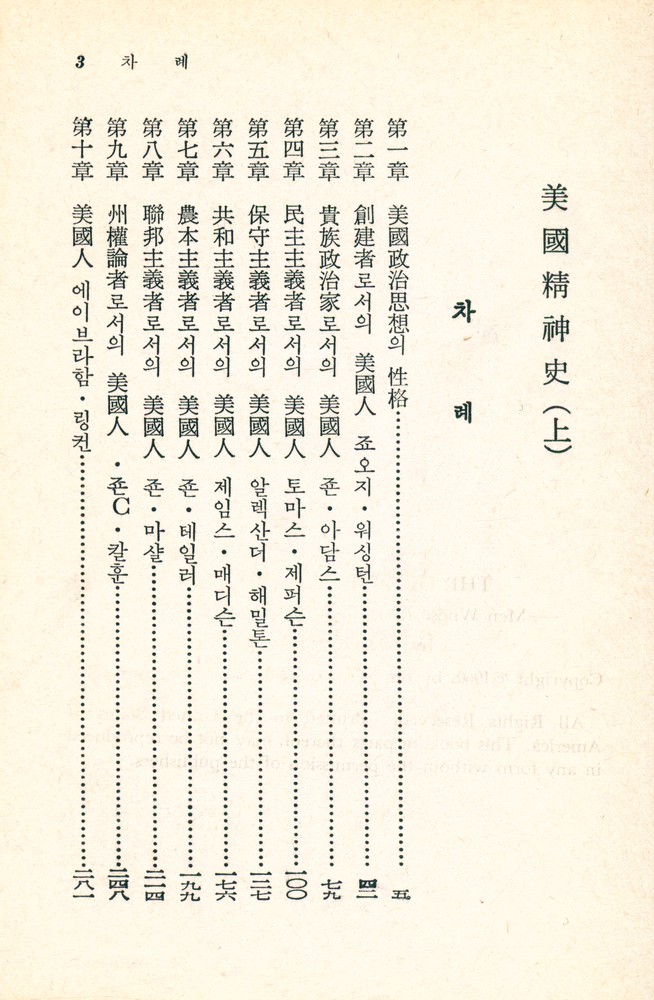 3 차 례
美國精神史(上)
차 례
第一章 美國政治思想의 性格……五
第二章 創建者로서의 美國人 죠오지·워싱턴……四三
第三章 貴族政治家로서의 美國人 죤·아담스……七九
第四章 民主主義者로서의 美國人 토마스·제퍼슨……一〇〇
第五章 保守主義者로서의 美國人 알렉산더·해밀톤……一三七
第六章 共和主義者로서의 美國人 제임스·매디슨……一七六
第七章 農本主義者로서의 美國人 죤·테일러……一九九
第八章 聯邦主義者로서의 美國人 죤·마샬……二一四
第九章 州權論者로서의 美國人·죤C·칼훈……二四八
第十章 美國人 에이브라함·링컨……二八一